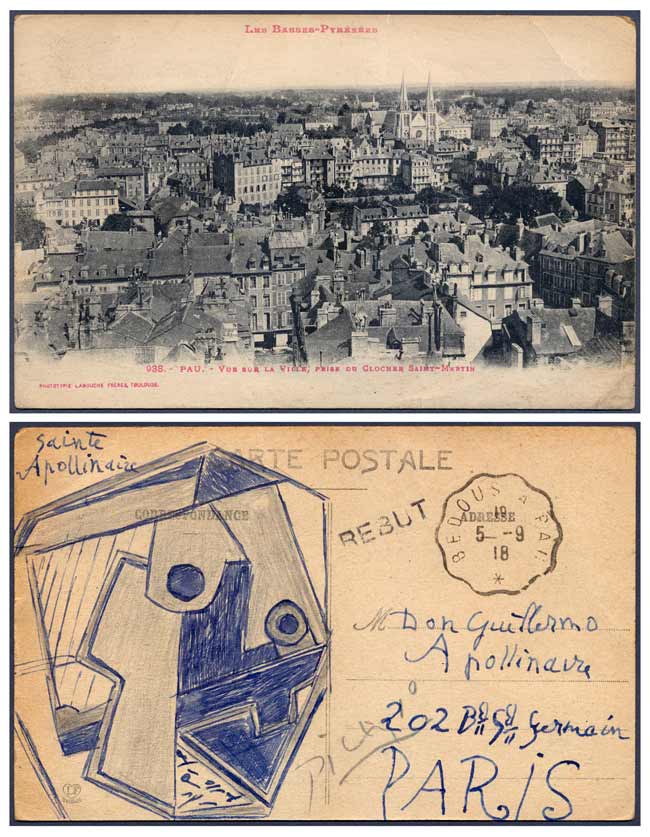 LES BASSES-PYRÉNÉES
938. - PAU. - VUE SUR LA VILLE, PRISE DU CLOCHER SAINT-MARTIN
PHOTOTYPIE LABOUCHE FRÈRES, TOULOUSE.
Sainte
Apollinaire
CARTE POSTALE
CORRESPONDANCE
ADRESSE
REBUT
BEDOUS A PAU
18
5 - 9
18
*
M Don Guillermo
Apollinaire
202 Bd St Germain
PARIS